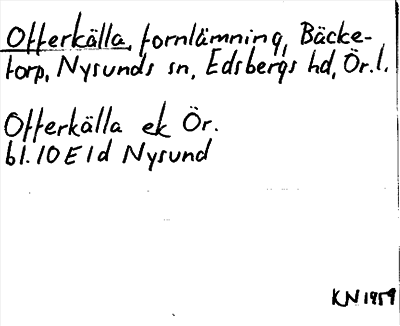 Offerkälla, fornlämning, Bäcke-
torp, Nysunds sn, Edsbergs hd, Ör.l.
Offerkälla ek Ör.
bl. 10 E 1d Nysund
KN 1959